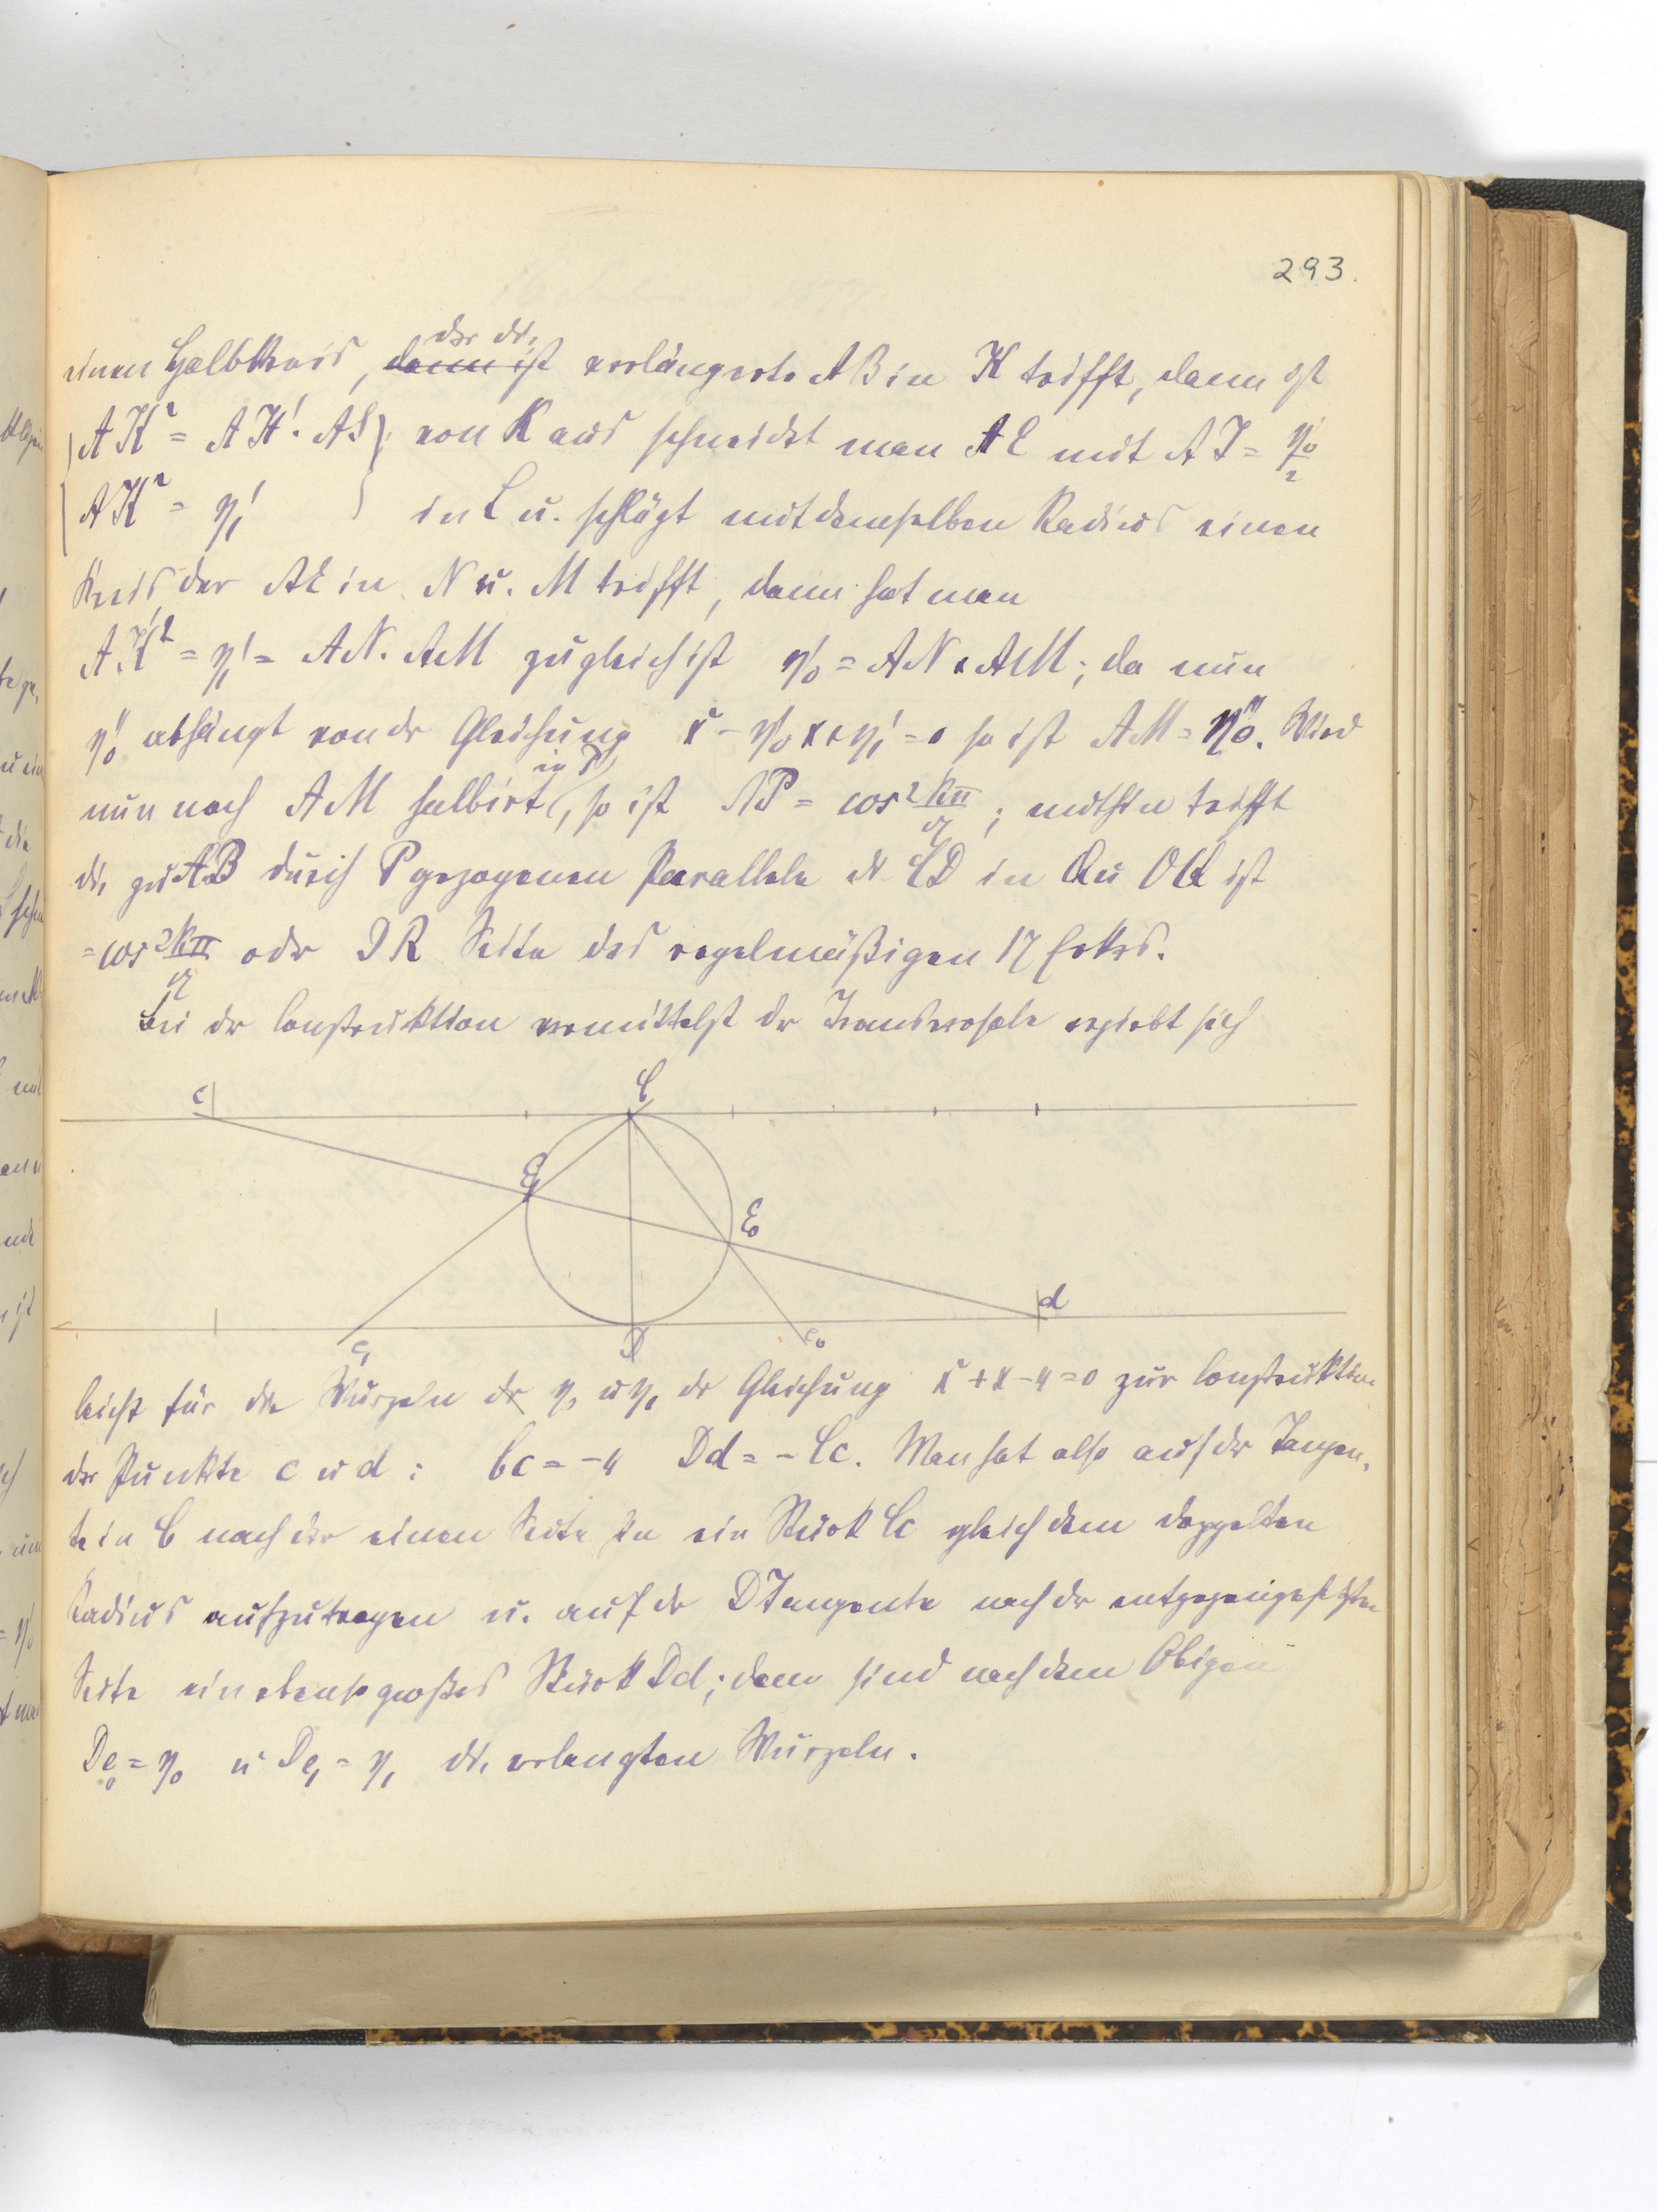 293.
der die
einen Halbkreis, dann ist verlängerte AB in K trifft, dann ist
AK² = AH'. AS von K aus schneidet man AE mit AI = η'₀/2
AK² = η'₁ in L u. schlägt mit demselben Radius einen
Kreis der AE in N u. M trifft, dann hat man
AK² = η'₁ = AN. AM zugleich ist η'₀ = AN + AM; da nun
η''₀ abhängt von der Gleichung x² - η'₀ x + η'₁ = 0 so ist AM = η''₀. Wird
in P
nun noch AM halbirt, so ist AP = cos 2kπ/17; mithin trifft
die zu AB durch P gezogenen Parallele die CD in Q u OQ ist
= cos 2kπ/17 oder DR Seite des regelmäßigen 17 Eckes.
Bei der Construktion vermittelst der Transversale ergiebt sich
c C
E₁ E₀
d
e₁ D e₀
leicht für die Wurzeln der η₀ u η₁ der Gleichung x² + x - 4 = 0 zur Construktion
der Punkte c u d : Cc = -4 Dd = - Cc. Man hat also auf der Tangen-
te in C nach der einen Seite hin ein Stück Cc gleich dem doppelten
Radius aufzutragen u. auf der D Tangente nach der entgegengesetzten
Seite ein ebenso großes Stück Dd; dann sind nach dem Obigen
De₀ = η₀ u De₁ = η₁ die verlangten Wurzeln.